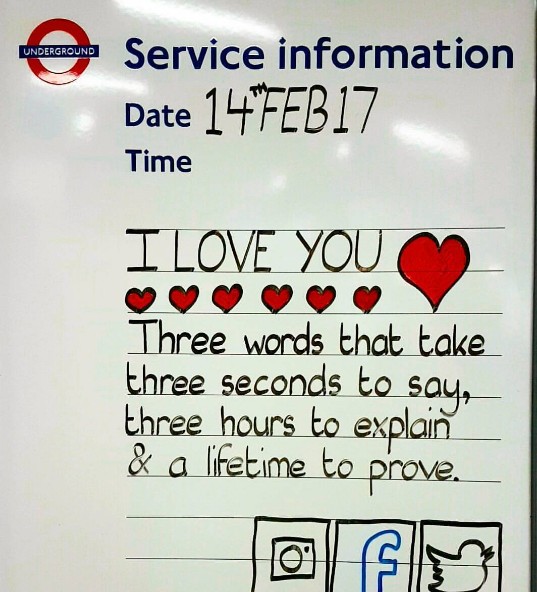 UNDERGROUND
Service information
Date 14TH FEB 17
Time
I LOVE YOU
Three words that take
three seconds to say,
three hours to explain
& a lifetime to prove.
f